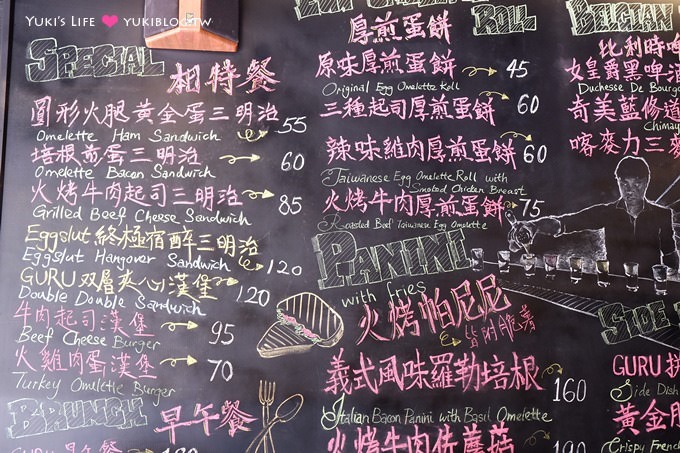 YUKI'S LIFE ♥ YUKIBLOG.TW
SPECIAL 相特餐
圓形火腿黃金蛋三明治 55
Omelette Ham Sandwich
培根煎蛋三明治 60
Omelette Bacon Sandwich
火烤牛肉起司三明治 85
Grilled Beef Cheese Sandwich
Eggslut 終極宿醉三明治
Eggslut Hangover Sandwich 120
GURU 双層夾心漢堡
Double Double Sandwich 120
牛肉起司漢堡 95
Beef Cheese Burger
火雞肉蛋漢堡 70
Turkey Omelette Burger
BRUNCH 早午餐
GURU 早午餐
ROLL
厚煎蛋餅
原味厚煎蛋餅 45
Original Egg Omelette Roll
三種起司厚煎蛋餅 60
辣味雞肉厚煎蛋餅 60
Taiwanese Egg Omelette Roll with
Smoked Chicken Breast
火烤牛肉厚煎蛋餅 75
Roasted Beef Taiwanese Egg Omelette
PANINI
with fries
火烤帕尼尼
皆附脆薯
義式風味羅勒培根 160
Italian Bacon Panini with Basil Omelette
火烤牛肉佐蘑菇 190
BELGIAN
比利時啤
女皇爵黑啤酒
Duchesse De Bourg
奇美藍修道
Chimay
喀麥力三麥
SIDE
GURU 拼
Side Dish
黃金脆
Crispy French